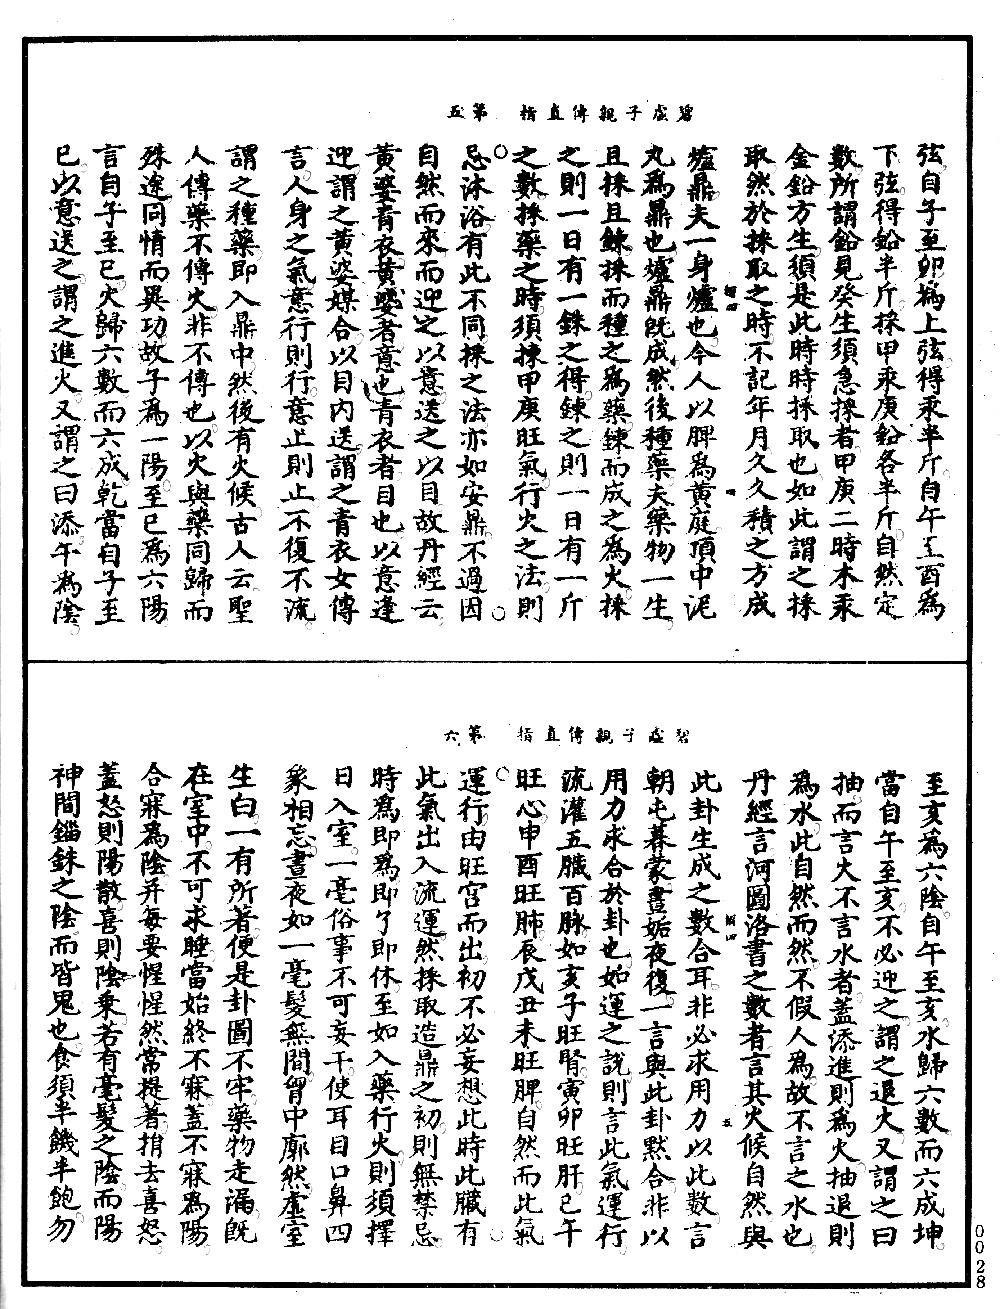 碧虛子親傳直指　第五
弦自子至卯為上弦得汞半斤自午至酉為
下弦得鉛半斤採甲汞庚鉛各半斤自然定
數所謂鉛見癸生須急採者甲庚二時木汞
金鉛方生須是此時時採取也如此謂之採
取然於採取之時不記年月久久積之方成
爐鼎夫一身爐也今人以脾為黃庭頂中泥
丸為鼎也爐鼎既成然後種藥夫藥物一生
且採且鍊採而種之為藥鍊而成之為火採
之則一日有一銖之得鍊之則一日有一斤
之數採藥之時須揀甲庚旺氣行火之法則
忌沐浴有此不同採之法亦如安鼎不過因
自然而來而迎之以意送之以目故丹經云
黃婆青衣黃婆者意也青衣者目也以意逢
迎謂之黃婆媒合以目內送謂之青衣女傳
言人身之氣意行則行意止則止不復不流
謂之種藥即入鼎中然後有火候古人云聖
人傳藥不傳火非不傳也以火與藥同歸而
殊途同情而異功故子為一陽至巳為六陽
言自子至巳火歸六數而六成乾當自子至
巳以意送之謂之進火又謂之曰添午為陰
碧虛子親傳直指　第六
至亥為六陰自午至亥水歸六數而六成坤
當自午至亥不必迎之謂之退火又謂之曰
抽而言火不言水者蓋添進則為火抽退則
為水此自然而然不假人為故不言之水也
丹經言河圖洛書之數者言其火候自然與
此卦生成之數合耳非必求用力以此數言
朝屯暮蒙晝姤夜復一言與此卦默合非以
用力求合於卦也如運之說則言此氣運行
流灌五臟百脉如亥子旺腎寅卯旺肝巳午
旺心申酉旺肺辰戌丑未旺脾自然而此氣
運行由旺宮而出初不必妄想此時此臟有
此氣出入流運然採取造鼎之初則無禁忌
時為即為即了即休至如入藥行火則須擇
日入室一毫俗事不可妄干使耳目口鼻四
象相忘晝夜如一毫髮無間胷中廓然虛室
生白一有所著便是卦圖不牢藥物走漏既
在室中不可求睡當始終不寐蓋不寐為陽
合寐為陰并每要惺惺然常提著捎去喜怒
蓋怒則陽散喜則陰乘若有毫髮之陰而陽
神間錙銖之陰而皆鬼也食須半饑半飽勿
0028